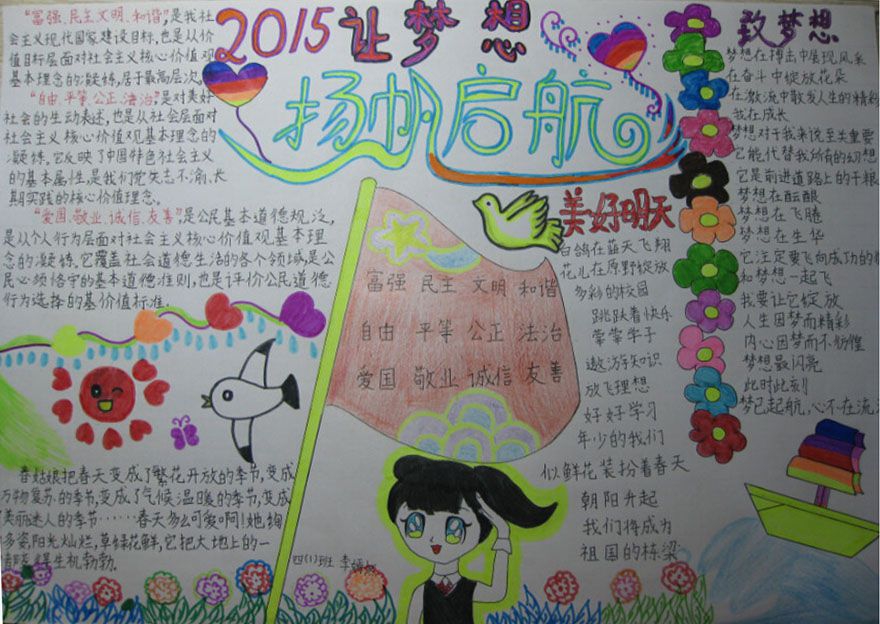 2015让梦想
扬帆启航
“富强、民主、文明、和谐”是我社
会主义现代国家建设目标,也是从价
值目标层面对社会主义核心价值观
基本理念的凝练,居于最高层次。
“自由、平等、公正、法治”是对美好
社会的生动表述,也是从社会层面对
社会主义核心价值观基本理念的
凝练,它反映了中国特色社会主义
的基本属性,是我们党矢志不渝、长
期实践的核心价值理念。
“爱国、敬业、诚信、友善”是公民基本道德规范,
是从个人行为层面对社会主义核心价值观基本理
念的凝练,它覆盖社会道德生活的各个领域,是公
民必须恪守的基本道德准则,也是评价公民道德
行为选择的基价值标准。
富强 民主 文明 和谐
自由 平等 公正 法治
爱国 敬业 诚信 友善
美好明天
白鸽在蓝天飞翔
花儿在原野绽放
多彩的校园
跳跃着快乐
莘莘学子
遨游知识
放飞理想
好好学习
年少的我们
似鲜花装扮着春天
朝阳升起
我们将成为
祖国的栋梁
致梦想
梦想在搏击中展现风采
在奋斗中绽放花朵
在激流中散发人生的精彩
我在成长
梦想对于我来说至关重要
它能代替我所有的幻想
它是前进道路上的干粮
梦想在酝酿
梦想在飞腾
梦想在升华
它注定要飞向成功的
和梦想一起飞
我要让它绽放
人生因梦而精彩
内心因梦而不彷徨
梦想最闪亮
此时此刻
梦已起航,心不在流
春姑娘把春天变成了繁花开放的季节,变成
万物复苏的季节,变成了气候温暖的季节,变成
美丽迷人的季节……春天多么可爱啊!她绚
多姿,阳光灿烂,草绿花鲜,它把大地上的一
得生机勃勃.
四(1)班 李